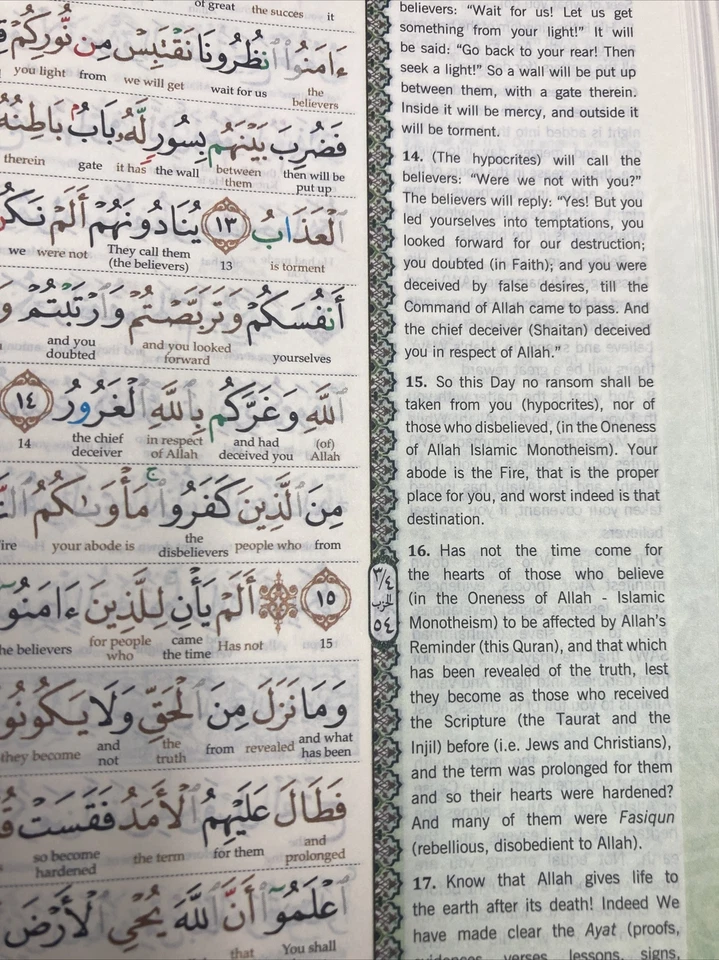 of great the succes it
ءَامَنُوا۟ ٱنظُرُونَا نَقْتَبِسْ مِن نُّورِكُمْ
you light from we will get wait for us the believers
فَضُرِبَ بَيْنَهُم بِسُورٍ لَّهُۥ بَابٌۢ بَاطِنُهُۥ
therein gate it has the wall between them then will be put up
ٱلْعَذَابُ ١٣ يُنَادُونَهُمْ أَلَمْ
we were not They call them (the believers) 13 is torment
أَنفُسَكُمْ وَتَرَبَّصْتُمْ وَٱرْتَبْتُمْ
and you doubted and you looked forward yourselves
ٱللَّهِ وَغَرَّكُم بِٱللَّهِ ٱلْغَرُورُ ١٤
14 the chief deceiver in respect of Allah and had deceived you (of) Allah
مِنَ ٱلَّذِينَ كَفَرُوا۟ مَأْوَىٰكُمُ
your abode is the disbelievers people who from
١٥ أَلَمْ يَأْنِ لِلَّذِينَ ءَامَنُوٓا۟
he believers for people who came the time Has not 15
وَمَا نَزَلَ مِنَ ٱلْحَقِّ وَلَا يَكُونُوا۟
they become and not the truth from revealed and what has been
فَطَالَ عَلَيْهِمُ ٱلْأَمَدُ فَقَسَتْ
so become hardened the term for them and prolonged
ٱعْلَمُوٓا۟ أَنَّ ٱللَّهَ يُحْىِ ٱلْأَرْضَ
that You shall
٣/٤
الحزب
٥٤
believers: “Wait for us! Let us get
something from your light!” It will
be said: “Go back to your rear! Then
seek a light!” So a wall will be put up
between them, with a gate therein.
Inside it will be mercy, and outside it
will be torment.
14. (The hypocrites) will call the
believers: “Were we not with you?”
The believers will reply: “Yes! But you
led yourselves into temptations, you
looked forward for our destruction;
you doubted (in Faith); and you were
deceived by false desires, till the
Command of Allah came to pass. And
the chief deceiver (Shaitan) deceived
you in respect of Allah.”
15. So this Day no ransom shall be
taken from you (hypocrites), nor of
those who disbelieved, (in the Oneness
of Allah Islamic Monotheism). Your
abode is the Fire, that is the proper
place for you, and worst indeed is that
destination.
16. Has not the time come for
the hearts of those who believe
(in the Oneness of Allah - Islamic
Monotheism) to be affected by Allah's
Reminder (this Quran), and that which
has been revealed of the truth, lest
they become as those who received
the Scripture (the Taurat and the
Injil) before (i.e. Jews and Christians),
and the term was prolonged for them
and so their hearts were hardened?
And many of them were Fasiqun
(rebellious, disobedient to Allah).
17. Know that Allah gives life to
the earth after its death! Indeed We
have made clear the Ayat (proofs,
verses, lessons, signs,